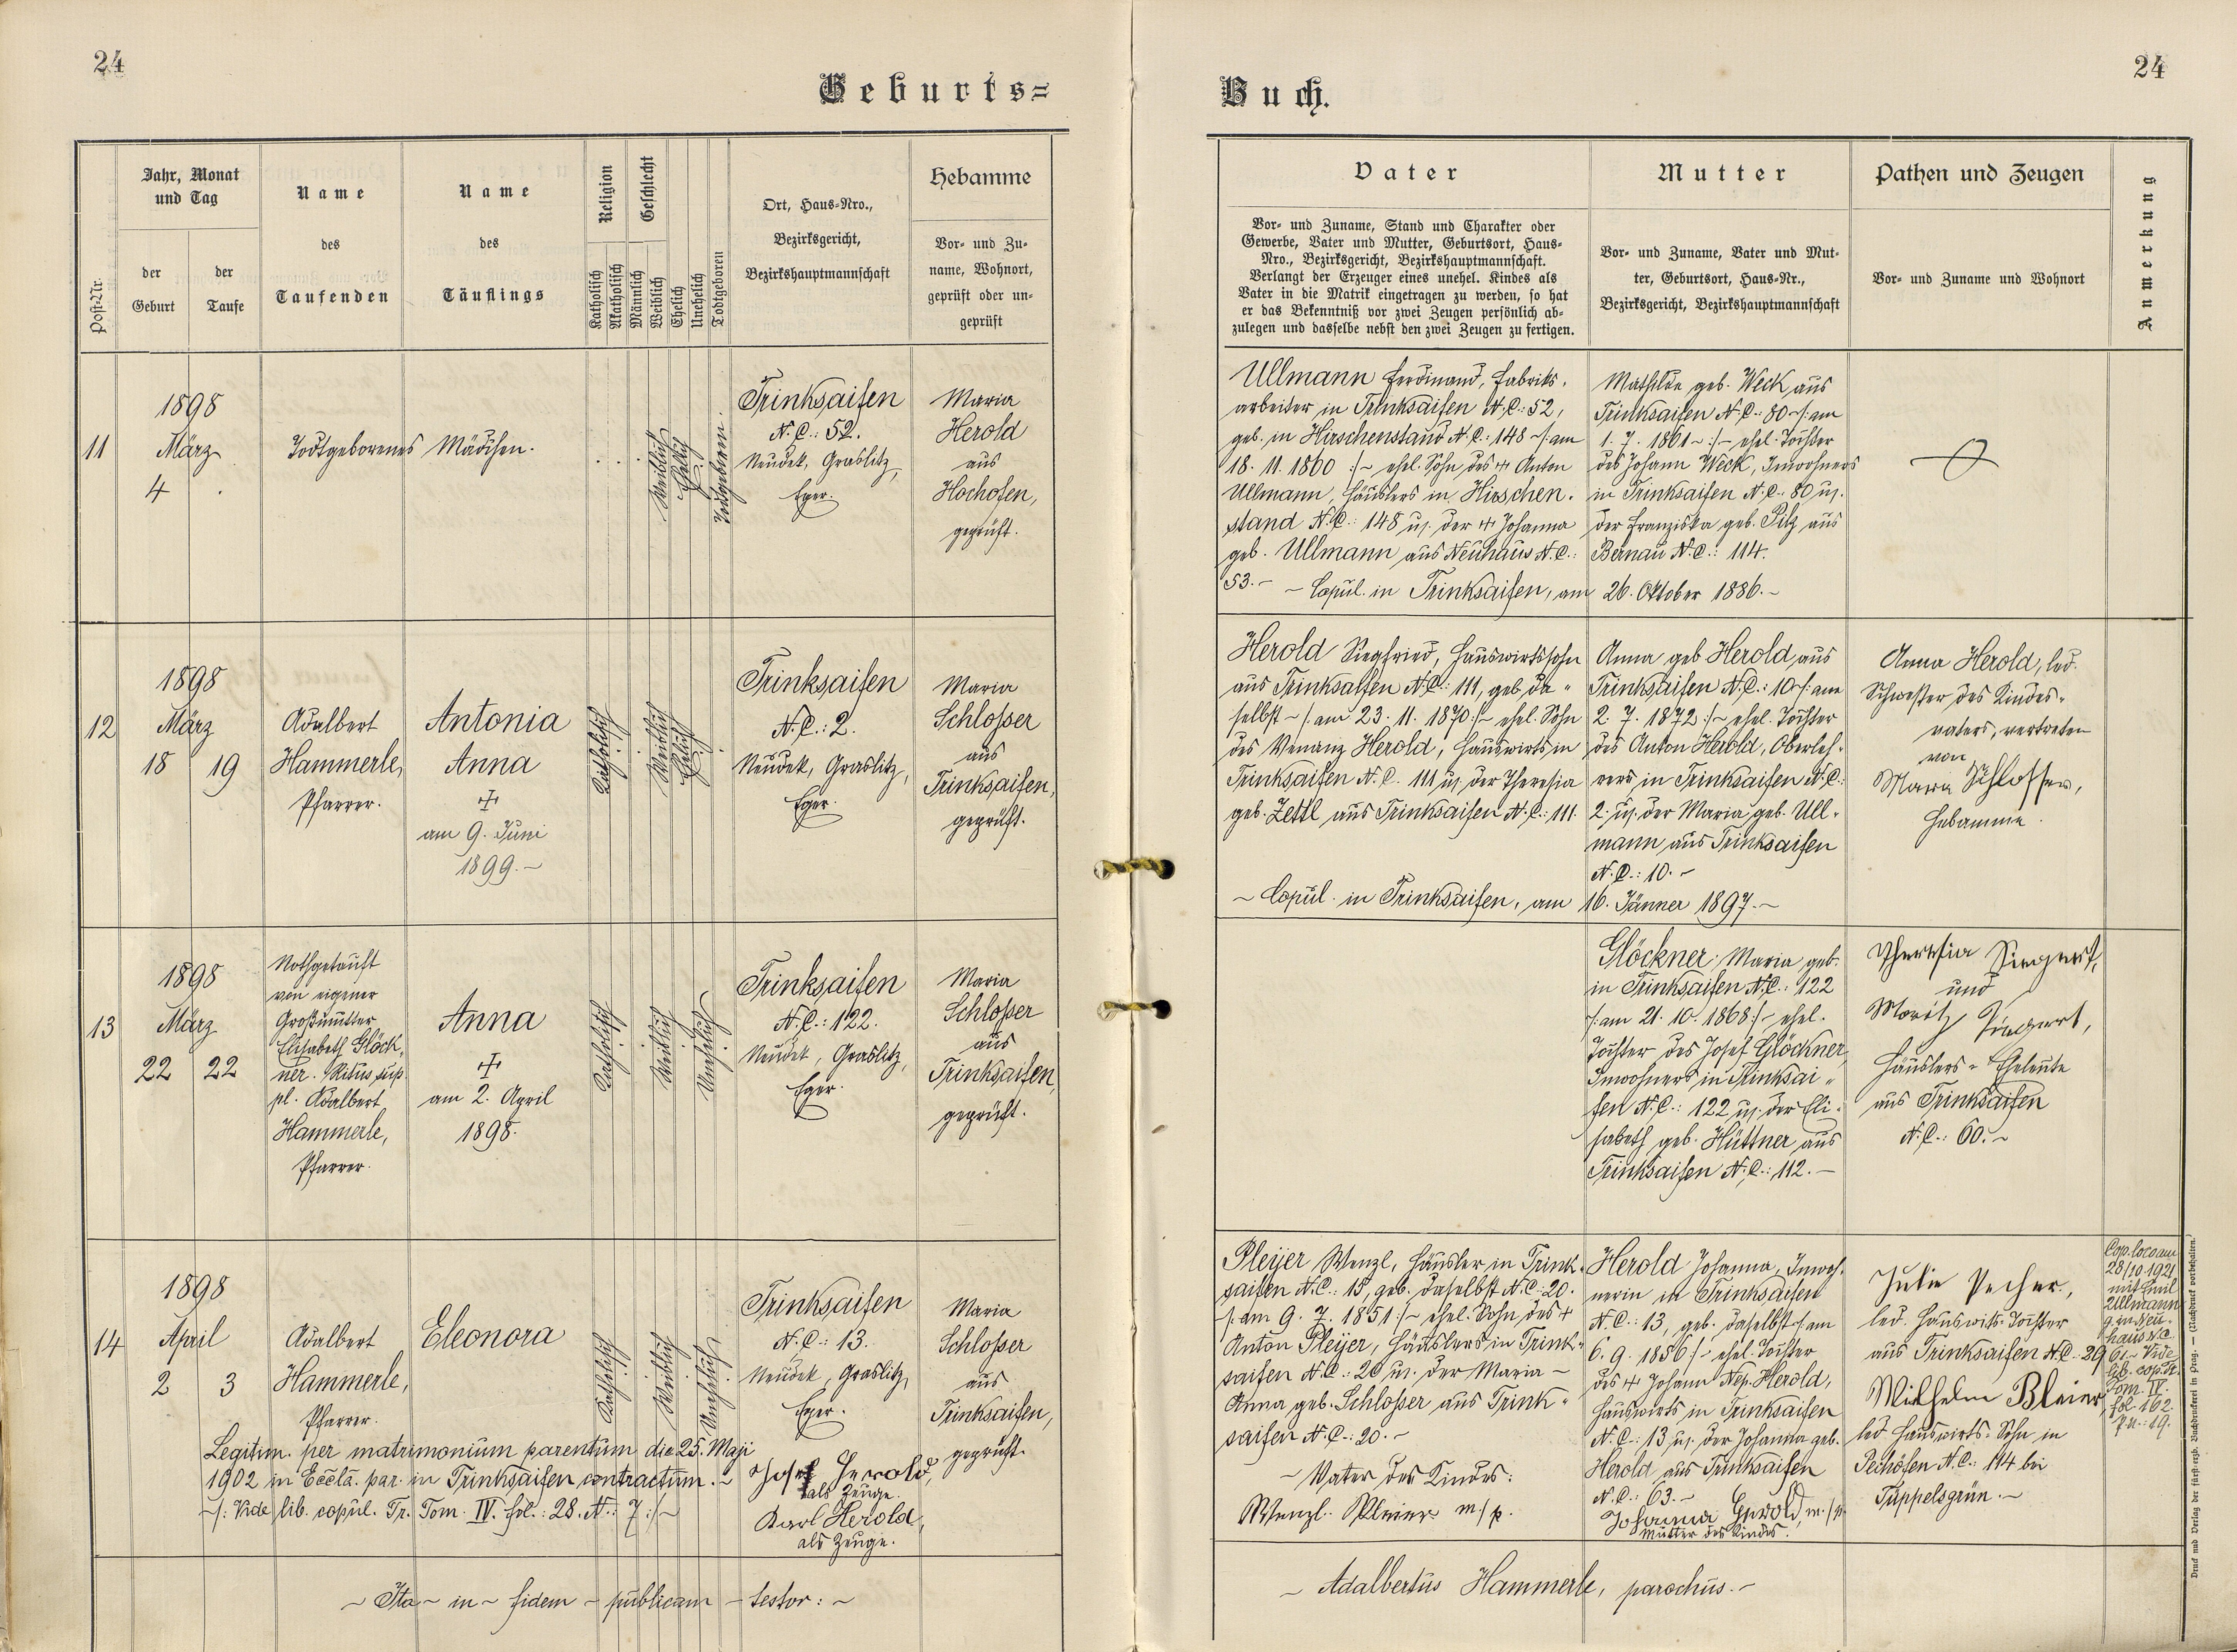 24
Geburts=
Post-Nr.
Jahr, Monat
und Tag
der
Geburt
der
Taufe
Name
des
Taufenden
Name
des
Täuflings
Religion
Katholisch
Akatholisch
Geschlecht
Männlich
Weiblich
Ehelich
Unehelich
Todtgeboren
Ort, Haus-Nro.,
Bezirksgericht,
Bezirkshauptmannschaft
Hebamme
Vor- und Zu-
name, Wohnort,
geprüft oder un-
geprüft
11
1898
März
4
Todtgeborenes Mädchen.
Weiblich
Ehelich
Todtgeboren
Trinksaifen
N.C.: 52.
Neudek, Graslitz,
Eger.
Maria
Herold
aus
Hochofen,
geprüft.
12
1898
März
18 19
Adalbert
Hammerle,
Pfarrer.
Antonia
Anna
am 9. Juni
1899.-
Katholisch
Weiblich
Ehelich
Trinksaifen
N.C.: 2.
Neudek, Graslitz,
Eger.
Maria
Schlosser
aus
Trinksaifen,
geprüft.
13
1898
März
22 22
Nothgetauft
von eigener
Großmutter
Elisabeth Glöck-
ner. Ritus sup-
pl. Adalbert
Hammerle,
Pfarrer.
Anna
am 2. April
1898.
Katholisch
Weiblich
Unehelich
Trinksaifen
N.C.: 122.
Neudek, Graslitz,
Eger.
Maria
Schlosser
aus
Trinksaifen,
geprüft.
14
1898
April
2 3
Adalbert
Hammerle,
Pfarrer.
Eleonora
Katholisch
Weiblich
Unehelich
Trinksaifen
N.C.: 13.
Neudek, Graslitz,
Eger.
Maria
Schlosser
aus
Trinksaifen,
geprüft.
Legitim. per matrimonium parentum die 25. Maji
1902 in Eccla. par. in Trinksaifen contractum.-
-/: Vide lib. copul. Tr. Tom. IV. fol.: 28. N.: 7 :/-
Josef Herold,
als Zeuge.
Karl Herold,
als Zeuge.
- Ita - in - fidem - publicam - testor: -
24
Buch.
Vater
Vor- und Zuname, Stand und Charakter oder
Gewerbe, Vater und Mutter, Geburtsort, Haus-
Nro., Bezirksgericht, Bezirkshauptmannschaft.
Verlangt der Erzeuger eines unehel. Kindes als
Vater in die Matrik eingetragen zu werden, so hat
er das Bekenntniß vor zwei Zeugen persönlich ab-
zulegen und dasselbe nebst den zwei Zeugen zu fertigen.
Mutter
Vor- und Zuname, Vater und Mut-
ter, Geburtsort, Haus-Nr.,
Bezirksgericht, Bezirkshauptmannschaft
Pathen und Zeugen
Vor- und Zuname und Wohnort
Anmerkung
Ullmann Ferdinand, Fabriks-
arbeiter in Trinksaifen N.C.: 52,
geb. in Hirschenstand N.C.: 148 -/: am
18. 11. 1860 :/- ehel. Sohn des + Anton
Ullmann, Häuslers in Hirschen-
stand N.C.: 148 u. der + Johanna
geb. Ullmann aus Neuhaus N.C.:
53.- - Copul. in Trinksaifen, am 26. Oktober 1886.-
Mathilde geb. Weck aus
Trinksaifen N.C.: 80 -/: am
1. 7. 1861 - :/- ehel. Tochter
des Johann Weck, Inwohners
in Trinksaifen N.C.: 80 u.
der Franziska geb. Pilz aus
Bernau N.C.: 114.
Herold Siegfried, Hauswirtssohn
aus Trinksaifen N.C.: 111, geb. da-
selbst -/: am 23. 11. 1870 :/- ehel. Sohn
des Venanz Herold, Hauswirts in
Trinksaifen N.C. 111 u. der Theresia
geb. Zettl aus Trinksaifen N.C.: 111.
Anna geb. Herold aus
Trinksaifen N.C.: 10 -/: am
2. 7. 1872 :/- ehel. Tochter
des Anton Herold, Oberleh-
rers in Trinksaifen N.C.:
2. u. der Maria geb. Ull-
mann aus Trinksaifen
N.C.: 10.-
- Copul. in Trinksaifen, am 16. Jänner 1897.-
Anna Herold, led.
Schwester des Kindes-
vaters, vertreten
von
Maria Schlosser,
Hebamme.
Glöckner Maria geb.
in Trinksaifen N.C.: 122
/: am 21. 10. 1868 :/- ehel.
Tochter des Josef Glöckner,
Inwohners in Trinksai-
fen N.C.: 122 u. der Eli-
sabeth geb. Hüttner aus
Trinksaifen N.C.: 112.-
Theresia Siegert,
und
Moritz Siegert,
Häuslers-Eheleute
aus Trinksaifen
N.C.: 60.-
Pleijer Wenzl, Häusler in Trink-
saifen N.C.: 15, geb. daselbst N.C.: 20.
-/: am 9. 7. 1851 :/- ehel. Sohn des +
Anton Pleijer, Häuslers in Trink-
saifen N.C.: 20 u. der Maria -
Anna geb. Schlosser aus Trink-
saifen N.C.: 20.-
- Vater des Kindes:
Wenzl Pleier m/p.
Herold Johanna, Inwoh-
nerin in Trinksaifen
N.C.: 13, geb. daselbst -/: am
6. 9. 1856 :/- ehel. Tochter
des + Johann Nep. Herold,
Hauswirts in Trinksaifen
N.C.: 13 u. der Johanna geb.
Herold aus Trinksaifen
N.C.: 63.-
Johanna Herold, m/p.
Mutter des Kindes.
Julie Pecher,
led. Hauswirts-Tochter
aus Trinksaifen N.C.: 29
Wilhelm Bleier,
led. Hauswirts-Sohn in
Pechöfen N.C.: 114 bei
Tüppelsgrün.-
Cop. loco am
28/10 1921
mit Emil
Ullmann
g. in Neu-
haus N.C.
61.- Vide
lib. cop. Tr.
Tom. IV.
fol. 162.
- Adalbertus Hammerle, parochus.-
Druck und Verlag der fürst-erzb. Buchdruckerei in Prag. — (Nachdruck vorbehalten.)